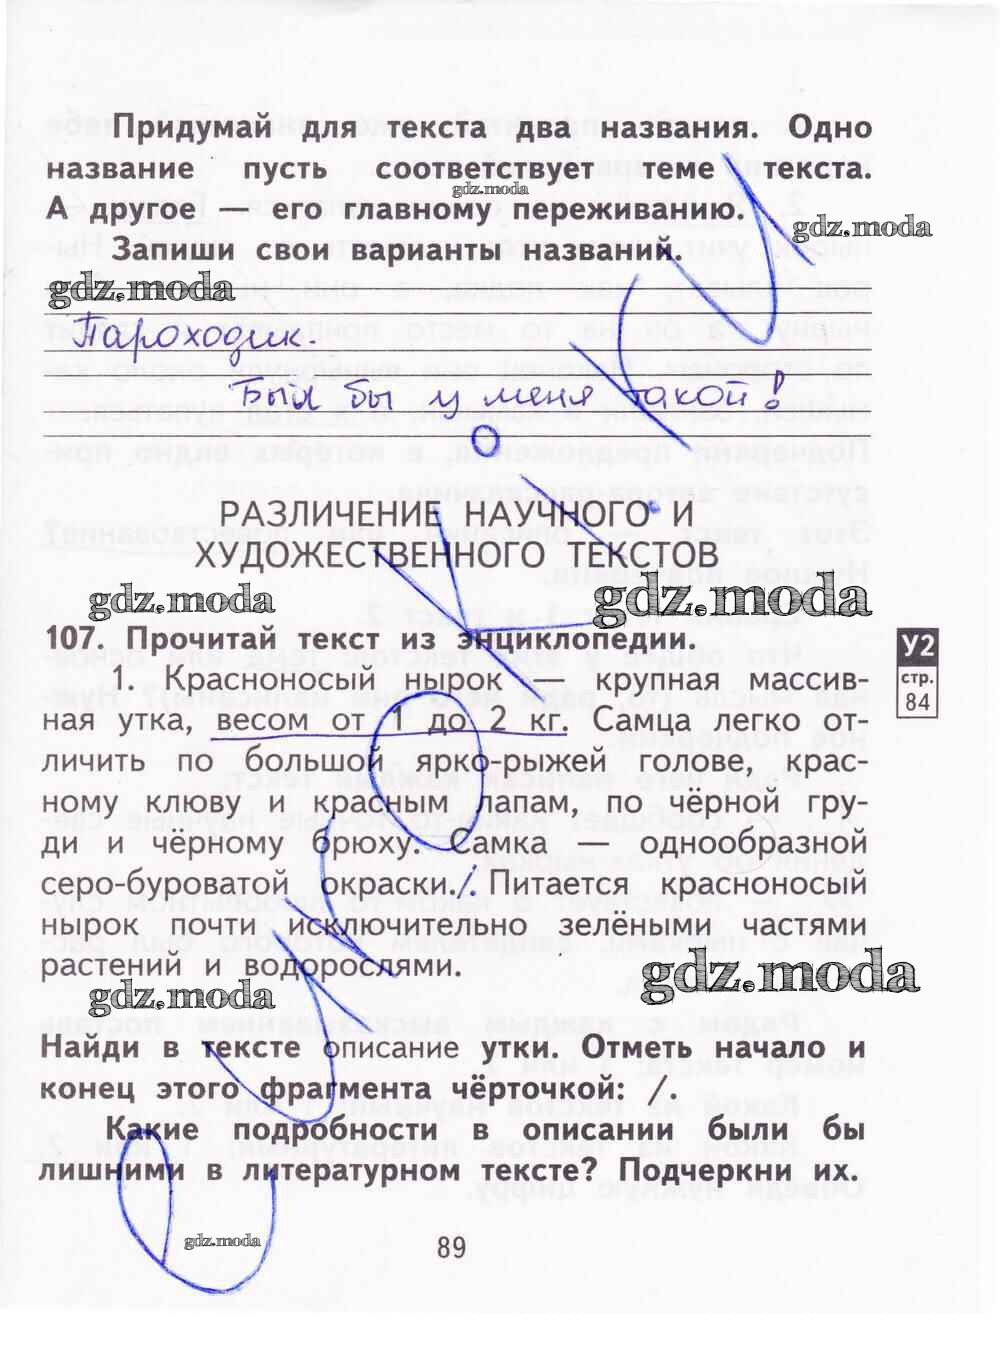 Придумай для текста два названия. Одно
название пусть соответствует теме текста.
gdz.moda
А другое — его главному переживанию.
gdz.moda
Запиши свои варианты названий.
gdz.moda
Пароходик.
Был бы у меня такой!
РАЗЛИЧЕНИЕ НАУЧНОГО И
ХУДОЖЕСТВЕННОГО ТЕКСТОВ
gdz.moda
gdz.moda
107. Прочитай текст из энциклопедии.
У2
стр.
84
1. Красноносый нырок — крупная массив-
ная утка, весом от 1 до 2 кг. Самца легко от-
личить по большой ярко-рыжей голове, крас-
ному клюву и красным лапам, по чёрной гру-
ди и чёрному брюху. Самка — однообразной
серо-буроватой окраски./. Питается красноносый
нырок почти исключительно зелёными частями
растений и водорослями.
gdz.moda
gdz.moda
Найди в тексте описание утки. Отметь начало и
конец этого фрагмента чёрточкой: /.
Какие подробности в описании были бы
лишними в литературном тексте? Подчеркни их.
gdz.moda
89